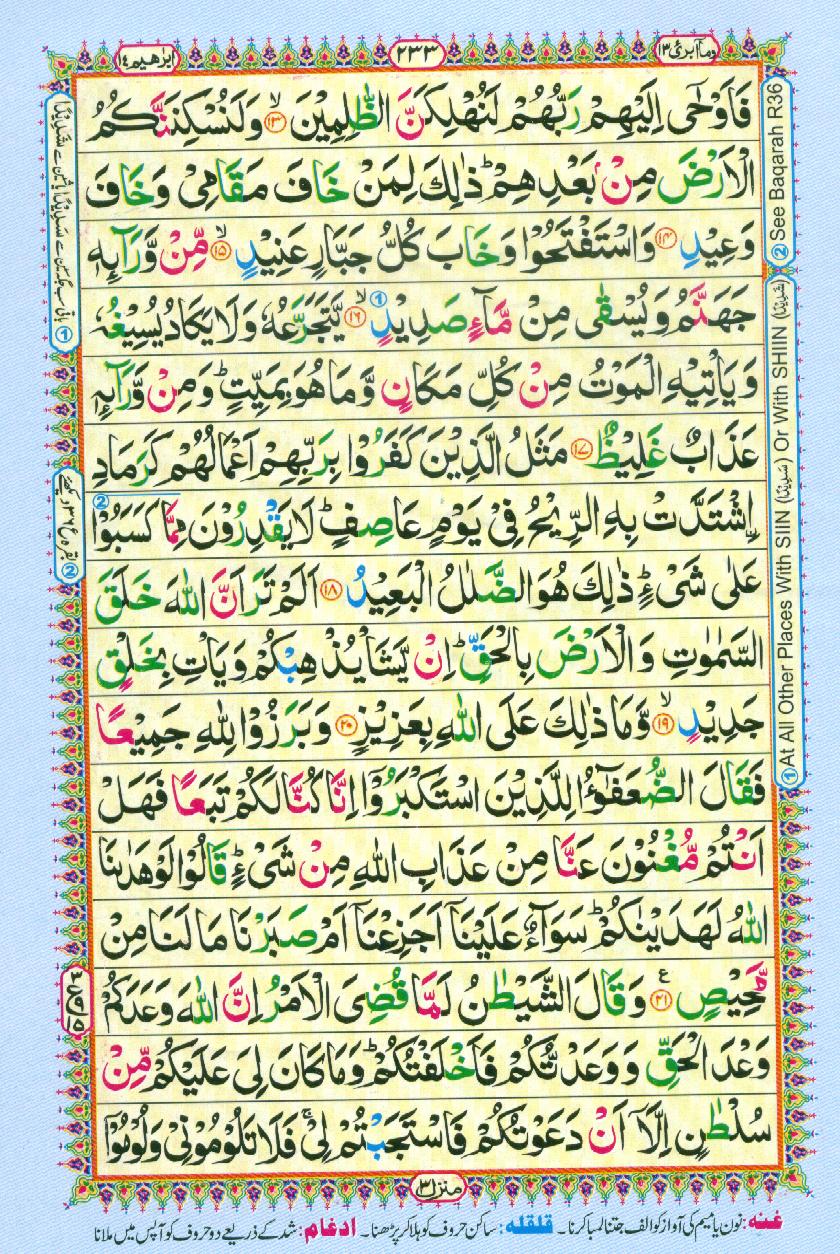 وما ابرئ ١٣
٢٣٣
ابرٰهيم ١٤
فَاَوْحٰۤى اِلَيْهِمْ رَبُّهُمْ لَنُهْلِكَنَّ الظّٰلِمِيْنَ ۙ‏﴿۱۳﴾ وَلَنُسْكِنَنَّكُمُ
الْاَرْضَ مِنْۢ بَعْدِهِمْ‌ؕ ذٰلِكَ لِمَنْ خَافَ مَقَامِىْ وَخَافَ
وَعِيْدِ‏ ﴿۱۴﴾ وَاسْتَفْتَحُوْا وَخَابَ كُلُّ جَبَّارٍ عَنِيْدٍۙ‏ ﴿۱۵﴾ مِّنْ وَّرَآٮِٕهٖ
جَهَنَّمُ وَيُسْقٰى مِنْ مَّآءٍ صَدِيْدٍ ①ۙ‏ ﴿۱۶﴾ يَّتَجَرَّعُهٗ وَلَا يَكَادُ يُسِيْغُهٗ
وَيَاْتِيْهِ الْمَوْتُ مِنْ كُلِّ مَكَانٍ وَّمَا هُوَ بِمَيِّتٍ‌ؕ وَمِنْ وَّرَآٮِٕهٖ
عَذَابٌ غَلِيْظٌ‏ ﴿۱۷﴾ مَثَلُ الَّذِيْنَ كَفَرُوْا بِرَبِّهِمْ‌ اَعْمَالُهُمْ كَرَمَادِ
ۨاشْتَدَّتْ بِهِ الرِّيْحُ فِىْ يَوْمٍ عَاصِفٍ‌ؕ لَا يَقْدِرُوْنَ مِمَّا كَسَبُوْا ②
عَلٰى شَىْءٍ‌ؕ ذٰلِكَ هُوَ الضَّلٰلُ الْبَعِيْدُ‏ ﴿۱۸﴾ اَلَمْ تَرَ اَنَّ اللّٰهَ خَلَقَ
السَّمٰوٰتِ وَالْاَرْضَ بِالْحَقِّ‌ؕ اِنْ يَّشَاْ يُذْهِبْكُمْ وَيَاْتِ بِخَلْقٍ
جَدِيْدٍۙ‏ ﴿۱۹﴾ وَّمَا ذٰلِكَ عَلَى اللّٰهِ بِعَزِيْزٍ‏ ﴿۲۰﴾ وَبَرَزُوْا لِلّٰهِ جَمِيْعًا
فَقَالَ الضُّعَفٰۤؤُا لِلَّذِيْنَ اسْتَكْبَرُوْۤا اِنَّا كُنَّا لَكُمْ تَبَعًا فَهَلْ
اَنْتُمْ مُّغْنُوْنَ عَنَّا مِنْ عَذَابِ اللّٰهِ مِنْ شَىْءٍ‌ؕ قَالُوْا لَوْ هَدٰٮنَا
اللّٰهُ لَهَدَيْنٰكُمْ‌ؕ سَوَآءٌ عَلَيْنَاۤ اَجَزِعْنَاۤ اَمْ صَبَرْنَا مَا لَنَا مِنْ
مَّحِيْصٍ ﴿۲۱﴾ع وَقَالَ الشَّيْطٰنُ لَمَّا قُضِىَ الْاَمْرُ اِنَّ اللّٰهَ وَعَدَكُمْ
وَعْدَ الْحَقِّ وَوَعَدْتُّكُمْ فَاَخْلَفْتُكُمْ‌ؕ وَمَا كَانَ لِىَ عَلَيْكُمْ مِّنْ
سُلْطٰنٍ اِلَّاۤ اَنْ دَعَوْتُكُمْ فَاسْتَجَبْتُمْ لِىْ‌ۚ فَلَا تَلُوْمُوْنِىْ وَلُوْمُوْۤا
② See Baqarah R36
① At All Other Places With SIIN (سَدِيْدًا) Or With SHIIN (شَدِيْدًا)
② بقرہ ع ۳۶ دیکھئے
منزل ٣
غنه: نون یا میم کی آواز کو الف جتنا لمبا کرنا۔ قلقله: ساکن حروف کو ہلا کر پڑھنا۔ ادغام: شد کے ذریعے دو حروف کو آپس میں ملانا